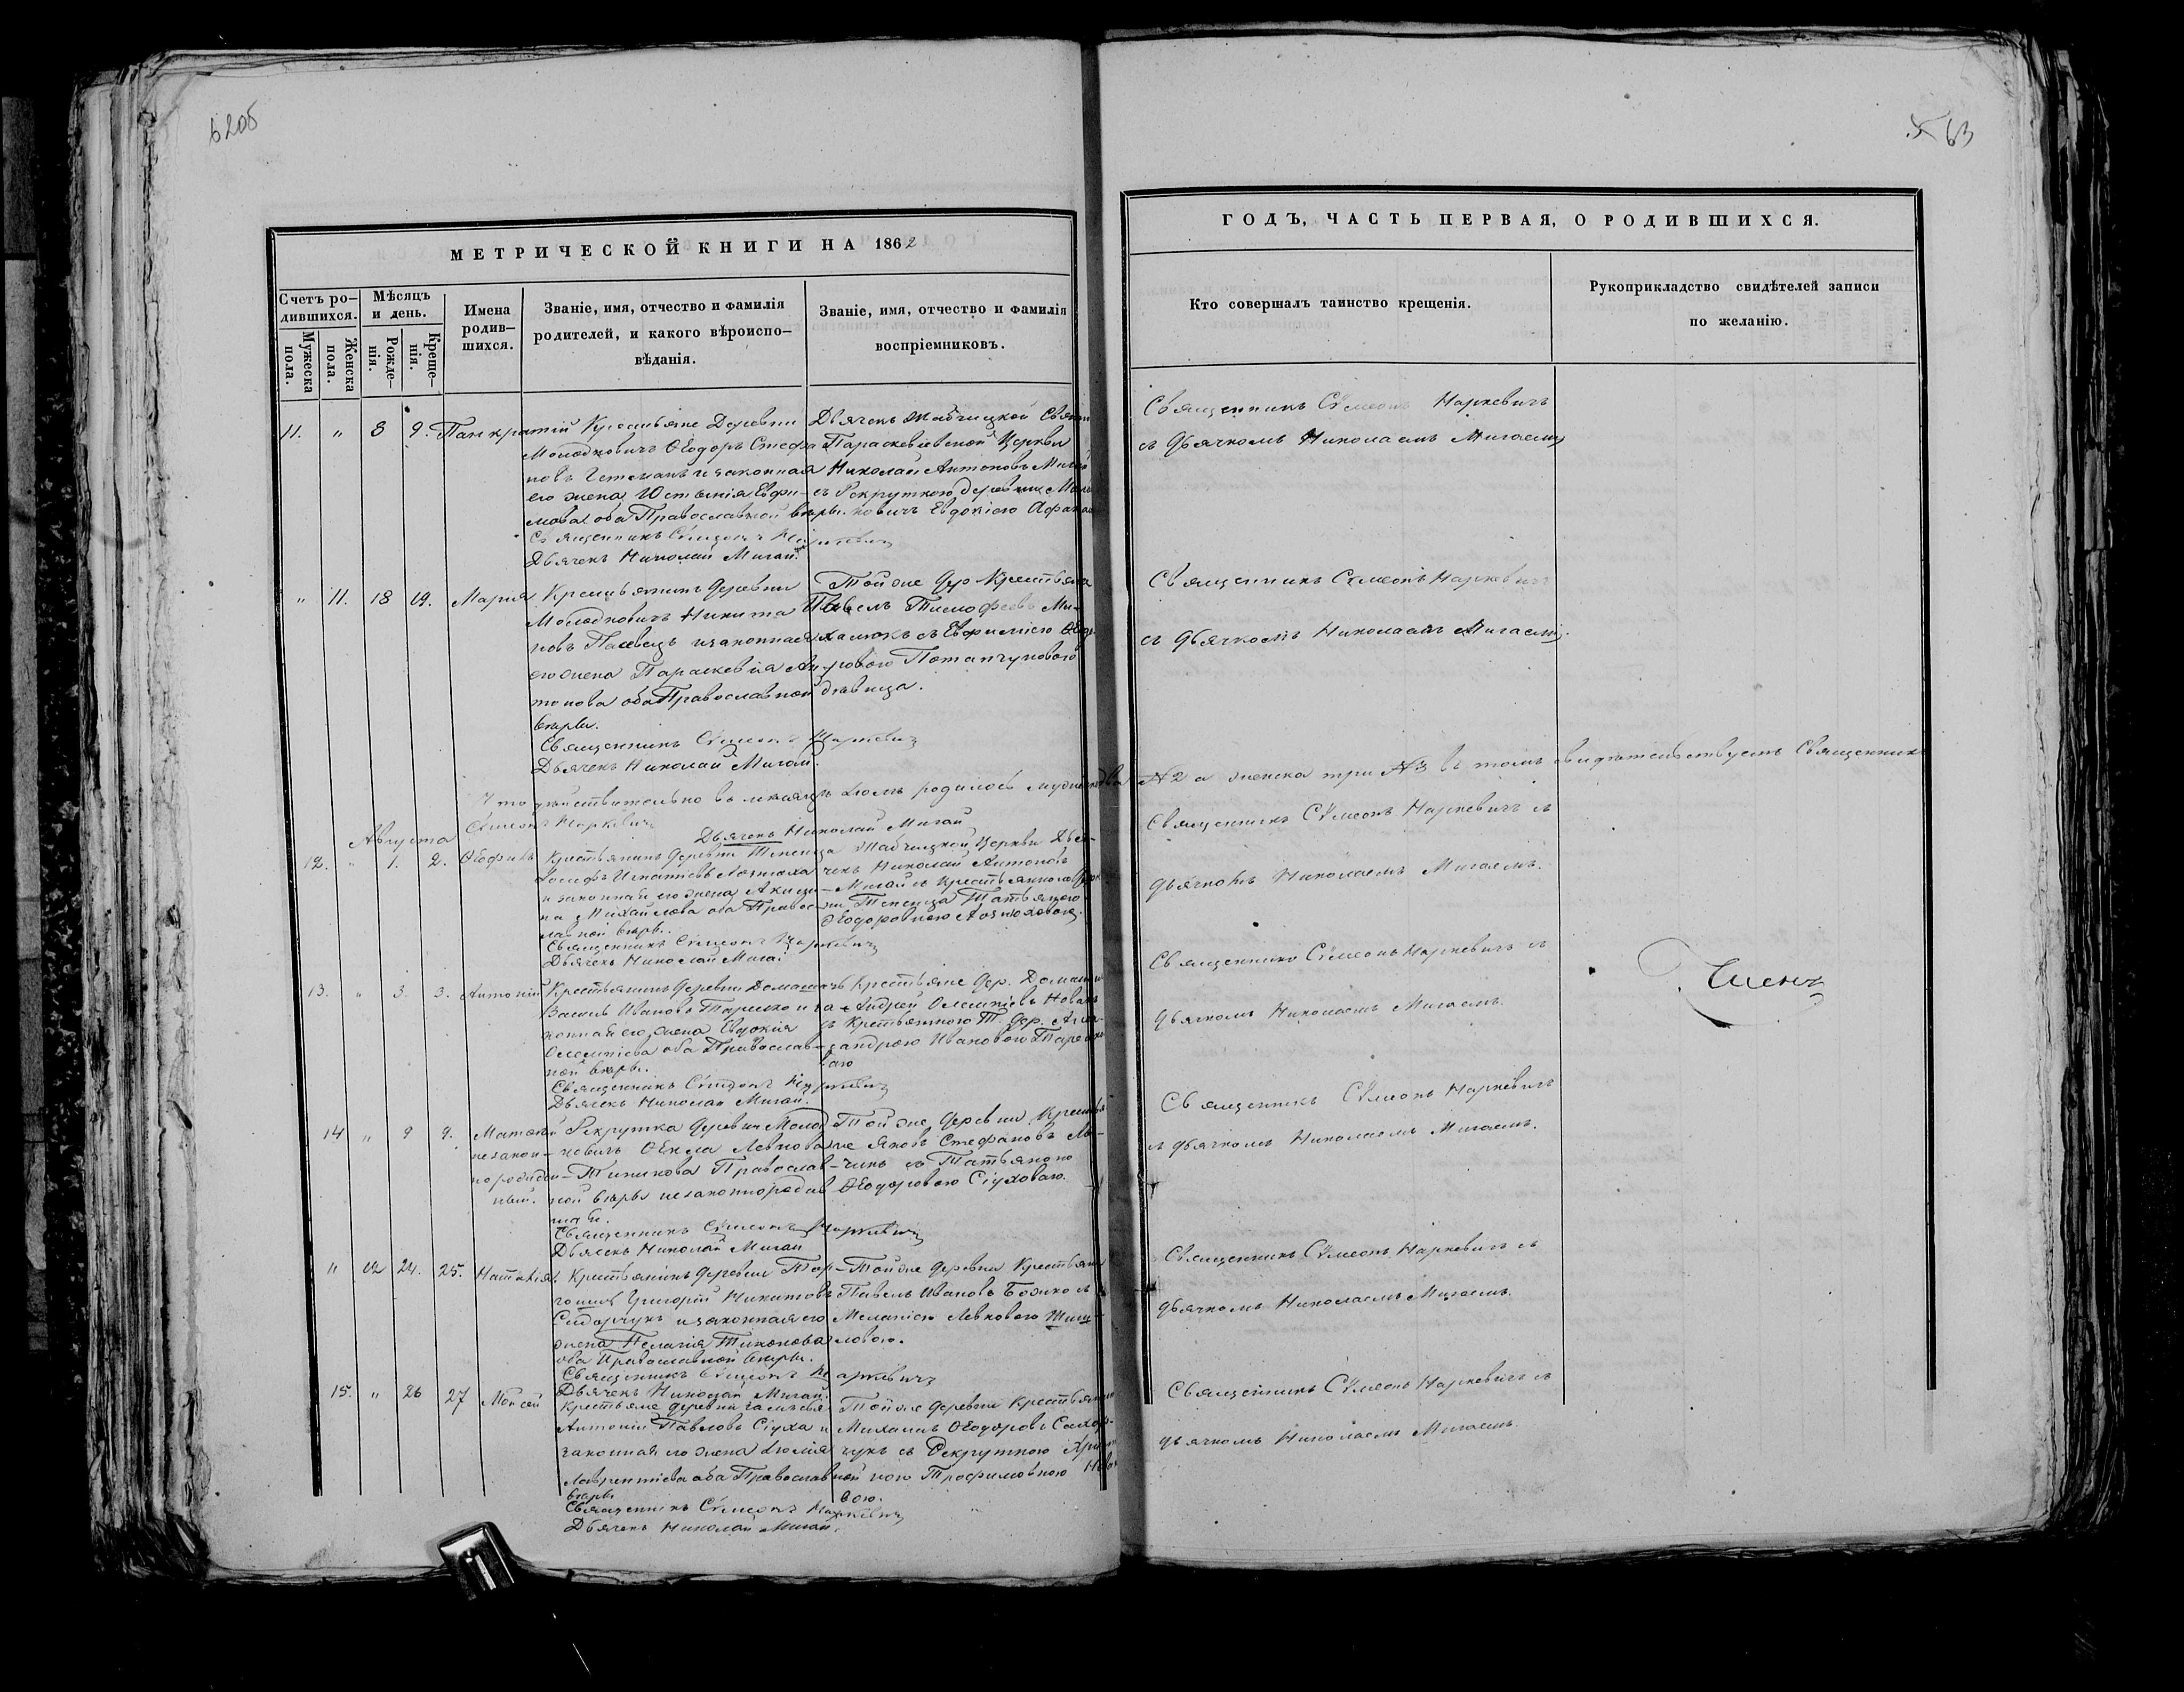 620б
63
МЕТРИЧЕСКОЙ КНИГИ НА 1862
ГОДЪ, ЧАСТЬ ПЕРВАЯ, О РОДИВШИХСЯ.
Счетъ ро-
дившихся.
Мужеска
пола.
Женска
пола.
Мѣсяцъ
и день.
Рожде-
нія.
Креще-
нія.
Имена
родив-
шихся.
Званіе, имя, отчество и фамилія
родителей, и какого вѣроиспо-
вѣданія.
Званіе, имя, отчество и фамилія
воспріемниковъ.
Кто совершалъ таинство крещенія.
Рукоприкладство свидѣтелей записи
по желанію.
11. " 8 9. Панкратій
Крестьяне Деревни
Молодковичъ Ѳеодоръ Стефа
новъ и законная
его жена Юстинія Евфи-
мова оба Православной вѣры.
Священникъ Сѵмеонъ Наркевичъ
Дьячекъ Николай Мигай.
Дьячекъ Жабчицкой Свято
Параскевіевской Церкви
Николай Антоновъ Мигай
съ Рекруткою деревни Моло
ковичъ Евдокіею
Священникъ Сѵмеонъ Наркевичъ
съ дьячкомъ Николаемъ Мигаемъ
" 11. 18 19. Марія
Крестьянинъ деревни
Молодковичъ Никита
новъ и законная
его жена Параскевія Ан
тонова оба Православной
вѣры.
Священникъ Сѵмеонъ Наркевичъ
Дьячекъ Николай Мигай.
Той же дер Крестьяни
Павелъ Тимофеевъ Ми-
халюкъ съ Евфиміею Ѳеодо
ровою Потапчуковою
дѣвица.
Священникъ Сѵмеонъ Наркевичъ
съ дьячкомъ Николаемъ Мигаемъ.
Что дѣйствительно въ мѣсяцѣ Іюлѣ родилось мужеска два № 2 а женска три № 3 въ томъ свидѣтельствуетъ Священникъ
Сѵмеонъ Наркевичъ
Дьячекъ Николай Мигай
Августа
12. " 1. 2. Ѳеофилъ
Крестьянинъ деревни Тепенца
Іосифъ Игнатіевъ Лознюха
и законная его жена Акили-
на Михайлова оба Правос-
лавной вѣры.
Священникъ Сѵмеонъ Наркевичъ
Дьячекъ Николай Мигай
Жабчицкой Церкви Дья-
чекъ Николай Антоновъ
Мигай съ Крестьянкою дерев
ни Тепенца Татьяною
Ѳеодоровною Лознюховою.
Священникъ Сѵмеонъ Наркевичъ съ
дьячкомъ Николаемъ Мигаемъ.
13. " 3. 3. Антоній
Крестьянинъ деревни Домашичъ
Василь Ивановъ Тараско и за
конная его жена Евдокія
Олемпіева оба Православ-
ной вѣры.
Священникъ Сѵмеонъ Наркевичъ
Дьячекъ Николай Мигай.
Крестьяне дер. Домаши
Андрей Олемпіевъ Новакъ
съ Крестьянкою Т. дер. Алек-
сандрою Ивановою Тараско
вою
Священникъ Сѵмеонъ Наркевичъ съ
дьячкомъ Николаемъ Мигаемъ.
14 " 9 9. Матөей
незакон-
норожден-
ный.
Рекрутка деревни Моло
ковичъ Ѳекла Левкова
Тишкова Православ-
ной вѣры незаконнородив
шаяся.
Священникъ Сѵмеонъ Наркевичъ
Дьячекъ Николай Мигай
Той же деревни Крестья
не Яковъ Стефановъ Ль-
чикъ съ Татьяною
Ѳеодоровою Сіуховою.
Священникъ Сѵмеонъ Наркевичъ
съ дьячкомъ Николаемъ Мигаемъ.
" 12 24. 25. Наталія
Крестьянинъ деревни Тар-
гошицъ Григорій Никитовъ
Сидорчукъ и законная его
жена Пелагія Тихонова
оба Православной вѣры.
Священникъ Сѵмеонъ Наркевичъ
Дьячекъ Николай Мигай.
Той же деревни Крестьяни
Павелъ Ивановъ Божко съ
Меланіею Левковою Шиш
ловою.
Священникъ Сѵмеонъ Наркевичъ съ
дьячкомъ Николаемъ Мигаемъ.
15. " 26 27 Мойсей
Крестьяне деревни
Антоній Павловъ Сіуха и
законная его жена Юлія
Лаврентіева оба Православной
вѣры
Священникъ Сѵмеонъ Наркевичъ
Дьячекъ Николай Мигай.
Той же деревни Крестьянинъ
Михаилъ Ѳеодоровъ Сидор-
чукъ съ Рекруткою Хрис
ною Трофимовною Нова
вою.
Священникъ Сѵмеонъ Наркевичъ съ
дьячкомъ Николаемъ Мигаемъ.
Членъ